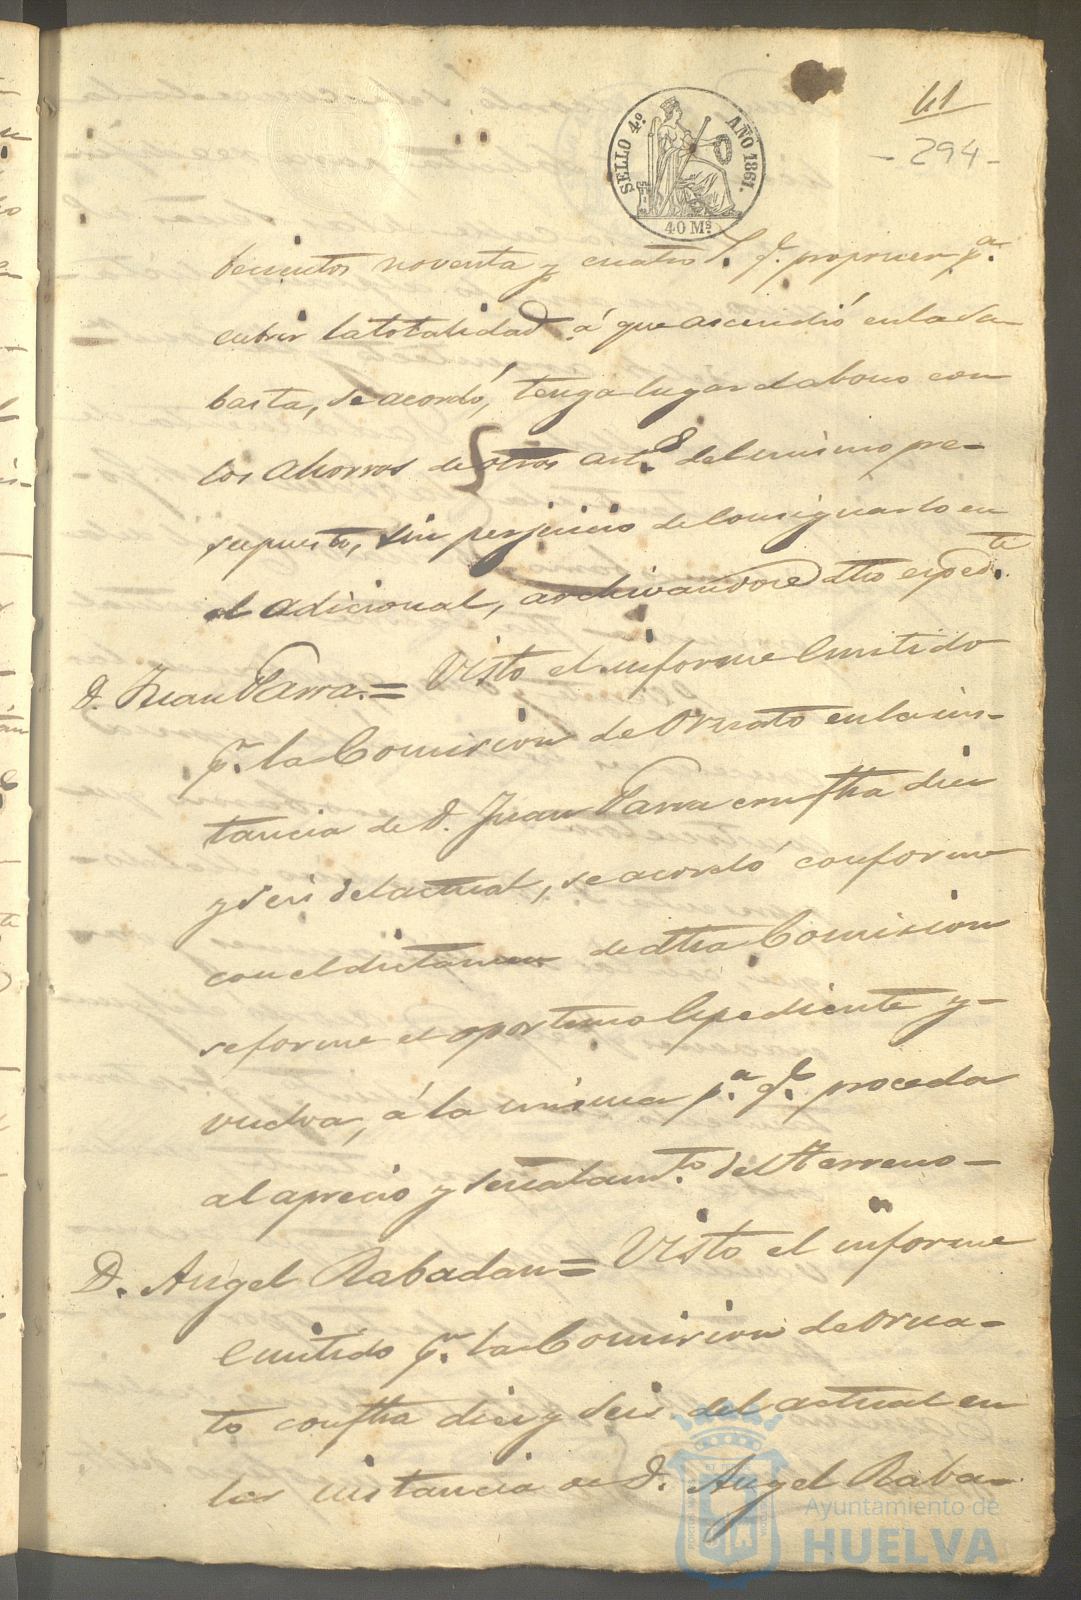 41
- 294 -
SELLO 4º AÑO 1861.
40 Ms
cientos noventa y cuatro r. q. pa
cubrir la totalidad á que ascendió en la su-
basta, se acordó, tenga lugar el abono con
los ahorros de otros arts. del mismo pre-
supuesto, sin perjuicio de consignarlo en
el adicional, archivandose dho expedte.
D. Juan Parra.= Visto el informe emitido
pr. la Comision de Ornato en la ins-
tancia de D. Juan Parra con fha diez
y seis del actual, se acordó conforme
con el dictamen de dha Comision
se forme el oportuno Expediente y-
vuelva, á la misma pa. qe. proceda
al aprecio y señalamto. del terreno-
D. Angel Rabadan= Visto el informe
emitido pr. la Comision de Orna-
to con fha diez y seis del actual en
la instancia de D. Angel Raba-
Ayuntamiento de
HUELVA